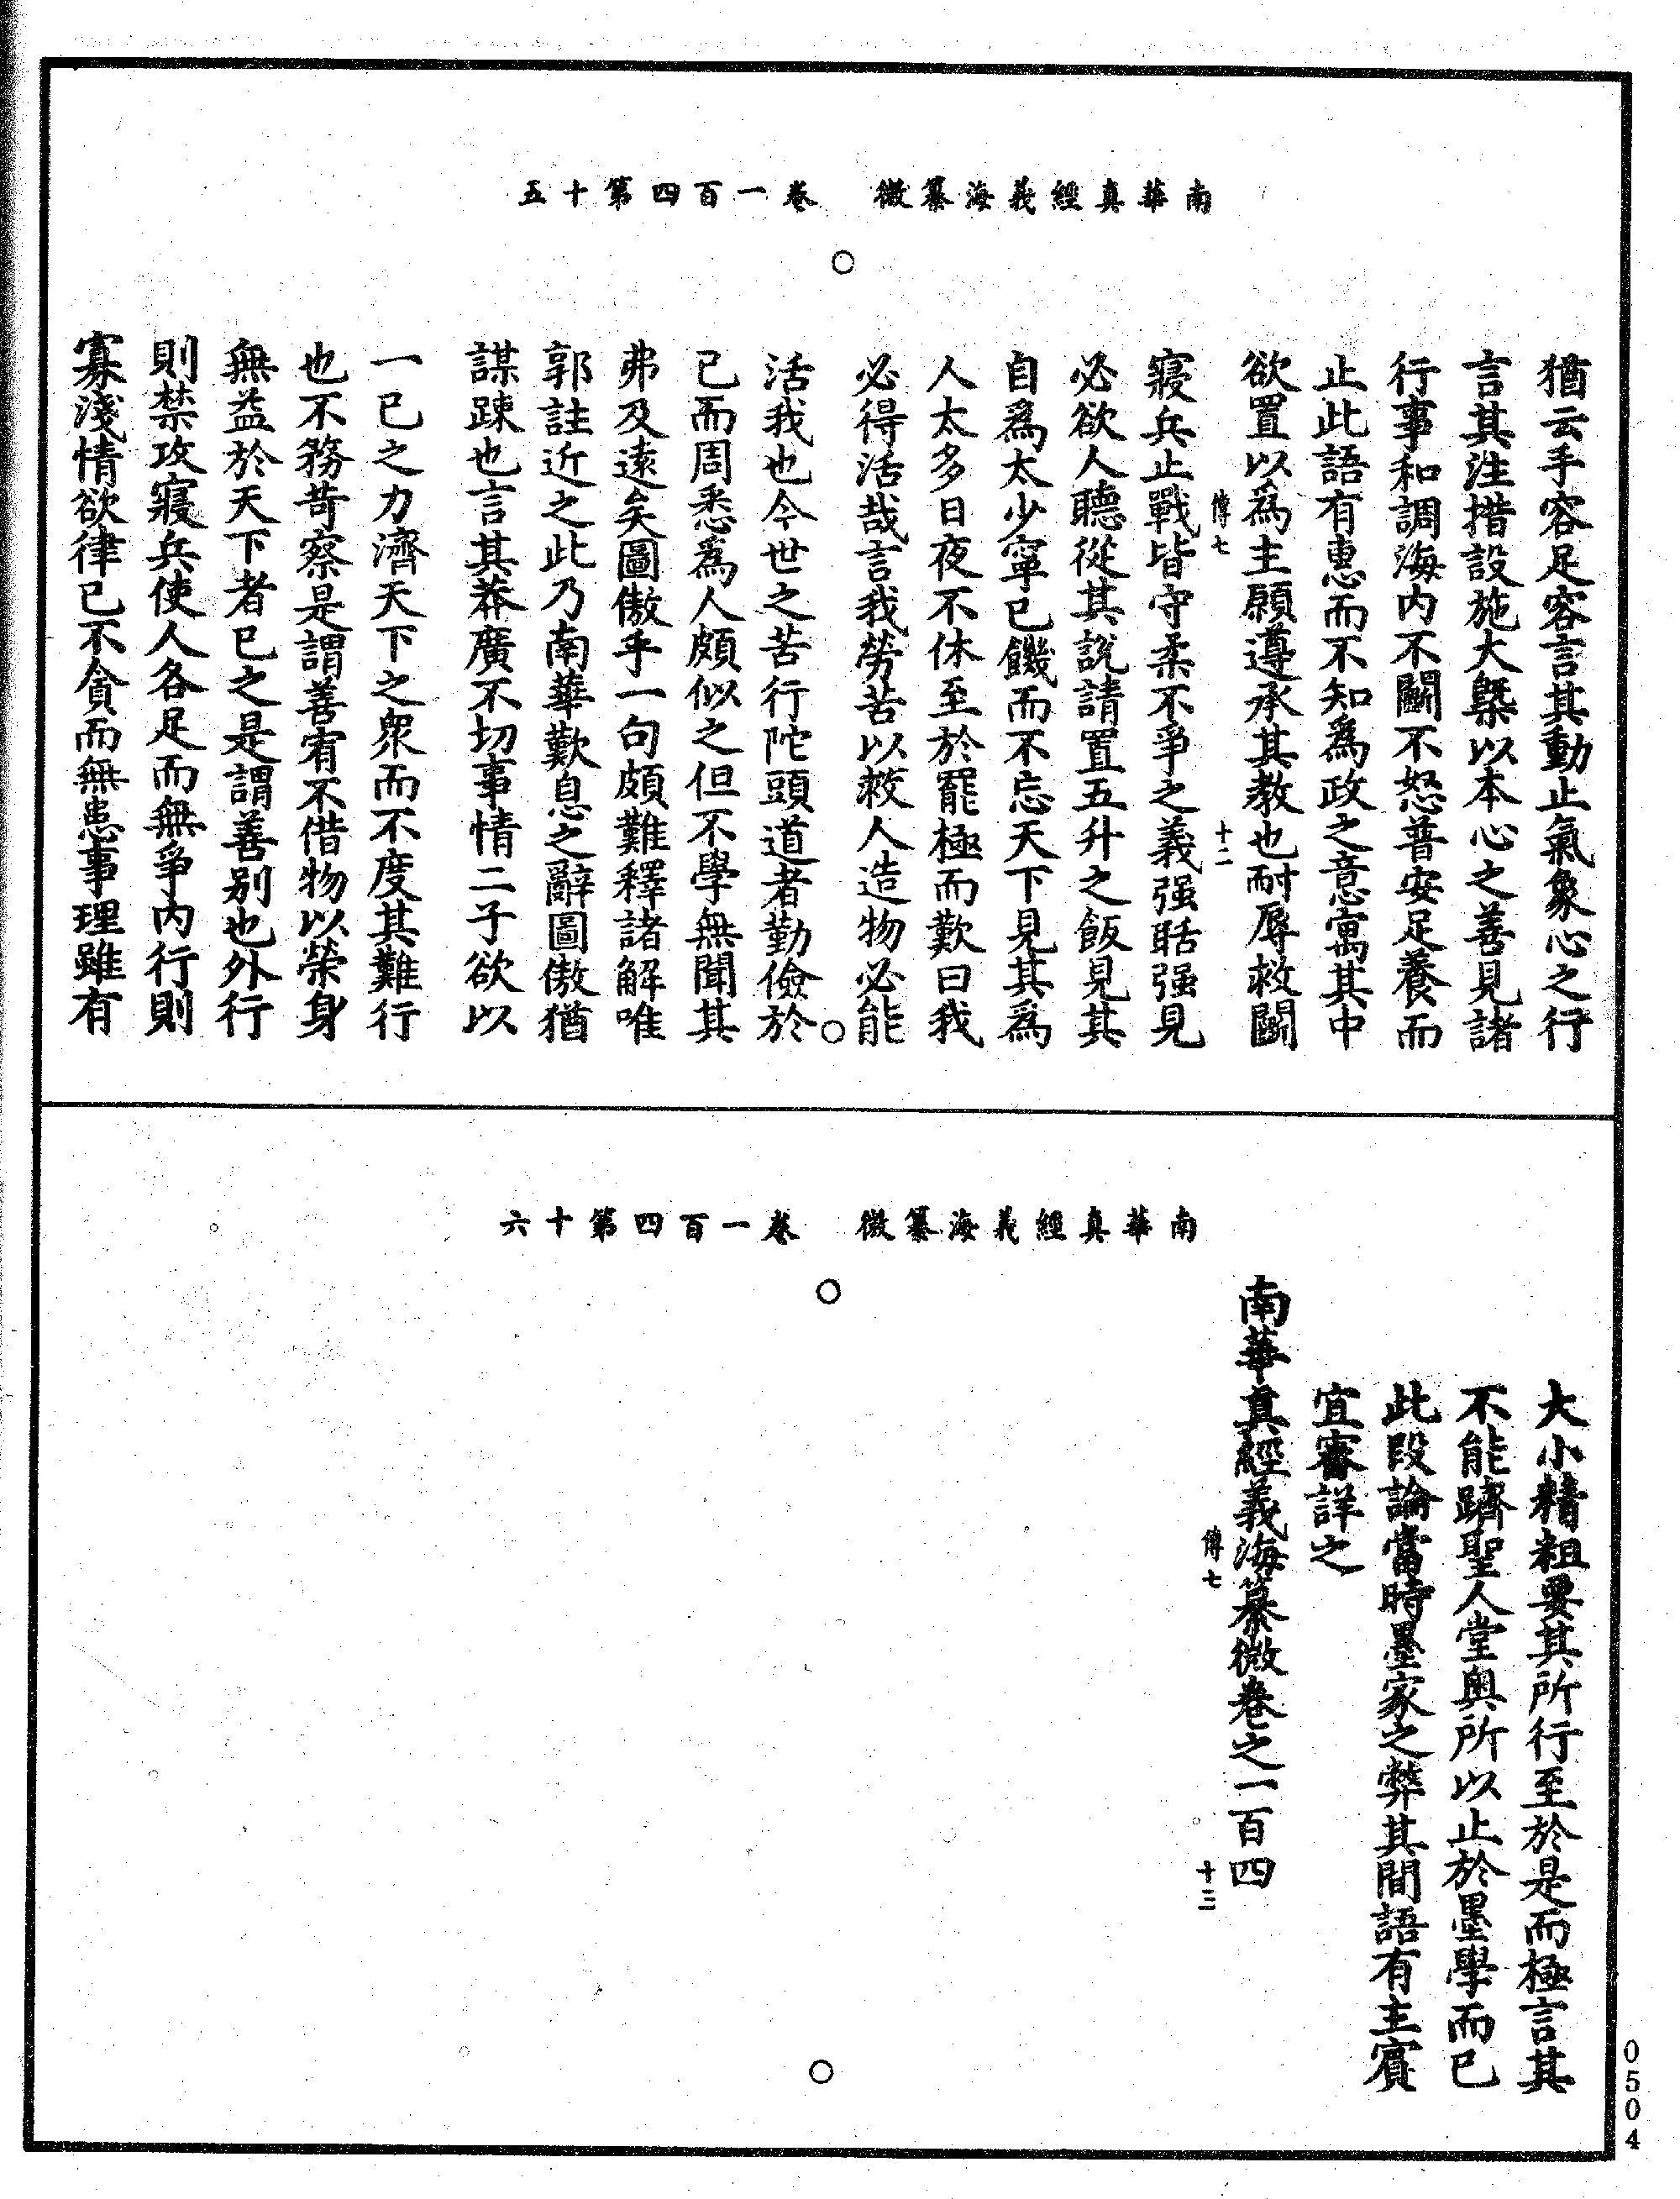 南華真經義海纂微　卷一百四第十五
猶云手容足容言其動止氣象心之行
言其注措設施大槩以本心之善見諸
行事和調海內不鬭不怒普安足養而
止此語有惠而不知為政之意寓其中
欲置以為主願遵承其教也耐辱救鬭
傅七　十二
寢兵止戰皆守柔不爭之義强聒强見
必欲人聽從其說請置五升之飯見其
自為太少寧已饑而不忘天下見其為
人太多日夜不休至於罷極而歎曰我
必得活哉言我勞苦以救人造物必能
活我也今世之苦行陀頭道者勤儉於
已而周悉為人頗似之但不學無聞其
弗及遠矣圖傲乎一句頗難釋諸解唯
郭註近之此乃南華歎息之辭圖傲猶
謀踈也言其莽廣不切事情二子欲以
一已之力濟天下之衆而不度其難行
也不務苛察是謂善宥不借物以榮身
無益於天下者已之是謂善別也外行
則禁攻寢兵使人各足而無爭內行則
寡淺情欲律已不貪而無恚事理雖有
南華真經義海纂微　卷一百四第十六
大小精粗要其所行至於是而極言其
不能躋聖人堂奧所以止於墨學而已
此段論當時墨家之弊其間語有主賓
宜審詳之
南華真經義海纂微卷之一百四
傅七　十三
0504